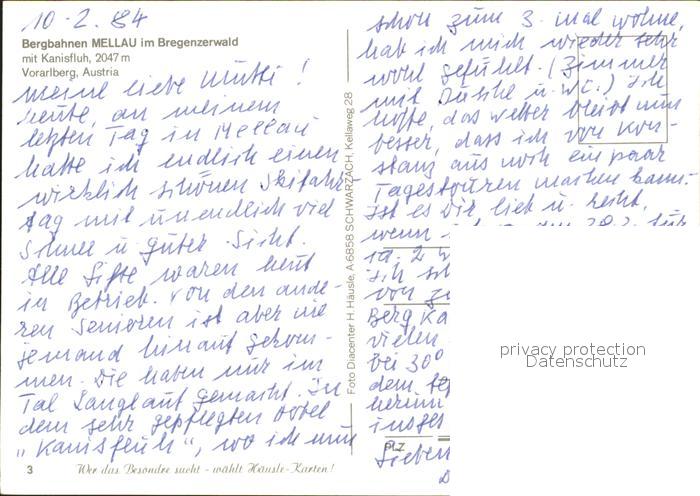 10.2.84
Bergbahnen MELLAU im Bregenzerwald
mit Kanisfluh, 2047 m
Vorarlberg, Austria
meine liebe Mutti!
heute, an meinem
letzten Tag in Mellau
hatte ich endlich einen
wirklich schönen Skifahr-
tag mit unendlich viel
Schnee u guter Sicht.
Alle Lifte waren heut
in Betrieb. Von den ande-
ren Senioren ist aber nie
jemand hinauf gekom-
men. Die haben nur im
Tal Langlauf gemacht. In
dem sehr gepflegten Hotel
"Kanisfluh", wo ich nun
3 Wer das Besondre sucht - wählt Häusle-Karten!
Foto Diacenter H. Häusle, A-6858 SCHWARZACH, Kellaweg 28
schon zum 3. mal wohne,
hab ich mich wieder sehr
wohl gefühlt. (Zimmer
mit Dusche u. WC.) Ich
hoffe, das Wetter bleibt nun
besser, dass ich von Kon-
stanz aus noch ein paar
Tagestouren machen kann.
Ist es Dir lieb u. recht,
wenn
ca. 2
Ich
von
Berg Ka
vielen
bei 30°
dem
herein
insges
PLZ
Lieben
privacy protection
Datenschutz